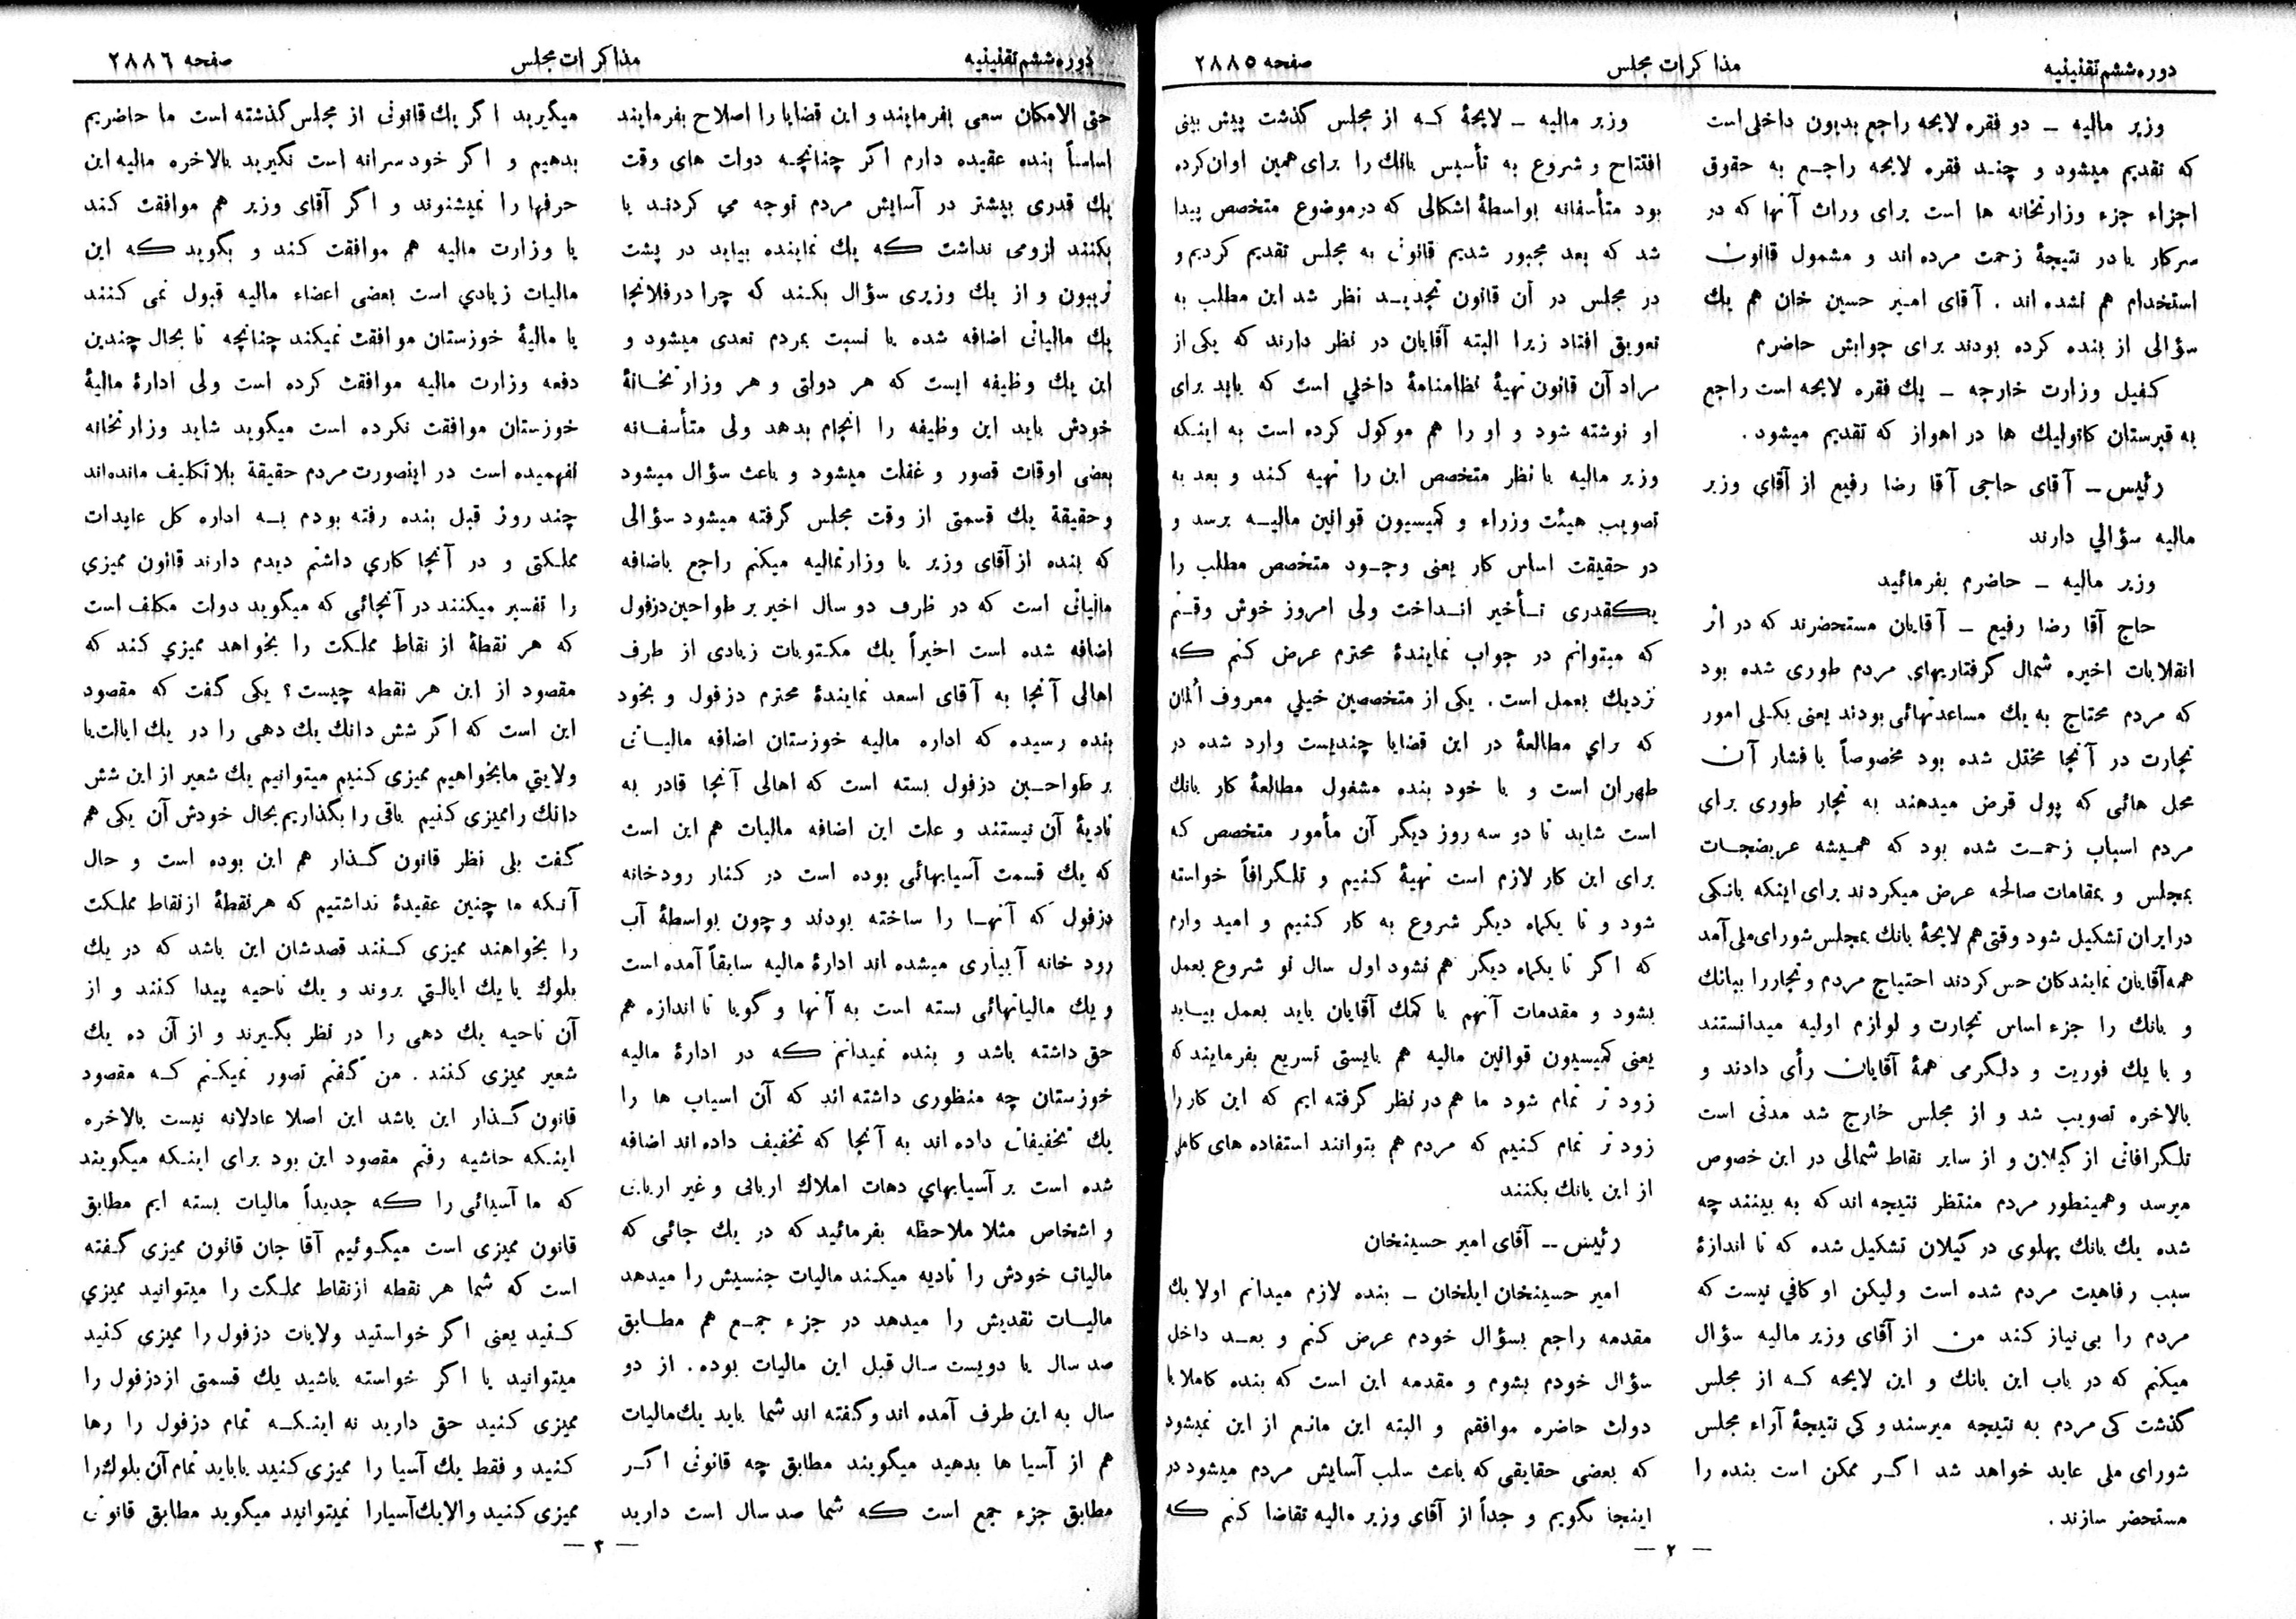 دوره ششم تقنینیه
مذاکرات مجلس
صفحه ۲۸۸۵
وزیر مالیه – دو فقره لایحه راجع بدیون داخلی است
که تقدیم میشود و چند فقره لایحه راجع به حقوق
اجزاء جزء وزارتخانه ها است برای وراث آنها که در
سرکار یا در نتیجهٔ زحمت مرده اند و مشمول قانون
استخدام هم نشده اند . آقای امیر حسین خان هم یك
سؤالی از بنده کرده بودند برای جوابش حاضرم
کفیل وزارت خارجه – یك فقره لایحه است راجع
به قبرستان کاتولیك ها در اهواز که تقدیم میشود .
رئیس – آقای حاجی آقا رضا رفیع از آقای وزیر
مالیه سؤالي دارند
وزیر مالیه – حاضرم بفرمائید
حاج آقا رضا رفیع – آقایان مستحضرند که در اثر
انقلابات اخیره شمال گرفتاریهای مردم طوری شده بود
که مردم محتاج به یك مساعدتهائی بودند یعنی بکلی امور
تجارت در آنجا مختل شده بود مخصوصاً با فشار آن
محل هائی که پول قرض میدهند به تجار طوری برای
مردم اسباب زحمت شده بود که همیشه عریضجات
بمجلس و بمقامات صالحه عرض میکردند برای اینکه بانکی
در ایران تشکیل شود وقتی هم لایحهٔ بانك بمجلس شورای ملی آمد
همه آقایان نمایندکان حس کردند احتیاج مردم و تجار را ببانك
و بانك را جزء اساس تجارت و لوازم اولیه میدانستند
و با یك فوریت و دلگرمی همهٔ آقایان رأی دادند و
بالاخره تصویب شد و از مجلس خارج شد مدتی است
تلگرافاتی از گیلان و از سایر نقاط شمالی در این خصوص
میرسد و همینطور مردم منتظر نتیجه اند که به بینند چه
شده یك بانك پهلوی در گیلان تشکیل شده که تا اندازهٔ
سبب رفاهیت مردم شده است ولیکن او کافي نیست که
مردم را بی نیاز کند من از آقای وزیر مالیه سؤال
میکنم که در باب این بانك و این لایحه که از مجلس
گذشت کی مردم به نتیجه میرسند و کي نتیجهٔ آراء مجلس
شورای ملی عاید خواهد شد اگر ممکن است بنده را
مستحضر سازند .
وزیر مالیه – لایحهٔ که از مجلس گذشت پیش بینی
افتتاح و شروع به تأسیس بانك را برای همین اوان کرده
بود متأسفانه بواسطهٔ اشکالی که در موضوع متخصص پیدا
شد که بعد مجبور شدیم قانونی به مجلس تقدیم کردیم و
در مجلس در آن قانون تجدید نظر شد این مطلب به
تعویق افتاد زیرا البته آقایان در نظر دارند که یکی از
مراد آن قانون تهیهٔ نظامنامهٔ داخلي است که باید برای
او نوشته شود و او را هم موکول کرده است به اینکه
وزیر مالیه با نظر متخصص این را تهیه کند و بعد به
تصویب هیئت وزراء و کمیسیون قوانین مالیه برسد و
در حقیقت اساس کار یعنی وجود متخصص مطلب را
یکقدری تأخیر انداخت ولی امروز خوش وقتم
که میتوانم در جواب نمایندهٔ محترم عرض کنم که
نزدیك بعمل است . یکی از متخصصین خیلي معروف آلمان
که براي مطالعهٔ در این قضایا چندیست وارد شده در
طهران است و با خود بنده مشغول مطالعهٔ کار بانك
است شاید تا دو سه روز دیگر آن مأمور متخصص که
برای این کار لازم است تهیهٔ کنیم و تلگرافاً خواسته
شود و تا یکماه دیگر شروع به کار کنیم و امید وارم
که اگر تا یکماه دیگر هم نشود اول سال نو شروع بعمل
بشود و مقدمات آنهم با کمك آقایان باید بعمل بیاید
یعنی کمیسیون قوانین مالیه هم بایستی تسریع بفرمایند که
زود تر تمام شود ما هم در نظر گرفته ایم که این کار را
زود تر تمام کنیم که مردم هم بتوانند استفاده های کاملی
از این بانك بکنند
رئیس – آقای امیر حسینخان
امیر حسینخان ایلخان – بنده لازم میدانم اولا یك
مقدمه راجع بسؤال خودم عرض کنم و بعد داخل
سؤال خودم بشوم و مقدمه این است که بنده کاملا با
دولت حاضره موافقم و البته این مانع از این نمیشود
که بعضی حقایقی که باعث سلب آسایش مردم میشود در
اینجا بگویم و جداً از آقای وزیر مالیه تقاضا کنم که
— ۲ —
دوره ششم تقنینیه
مذاکرات مجلس
صفحه ۲۸۸۶
حتی الامکان سعی بفرمایند و این قضایا را اصلاح بفرمایند
اساساً بنده عقیده دارم اگر چنانچه دولت های وقت
یك قدری بیشتر در آسایش مردم توجه می کردند یا
بکنند لزومی نداشت که یك نماینده بیاید در پشت
تریبون و از یك وزیری سؤال بکند که چرا در فلانجا
یك مالیاتی اضافه شده یا نسبت بمردم تعدی میشود و
این یك وظیفه ایست که هر دولتی و هر وزارتخانهٔ
خودش باید این وظیفه را انجام بدهد ولی متأسفانه
بعضی اوقات قصور و غفلت میشود و باعث سؤال میشود
و حقیقة یك قسمتی از وقت مجلس گرفته میشود سؤالی
که بنده از آقای وزیر یا وزارتمالیه میکنم راجع باضافه
مالیاتی است که در ظرف دو سال اخیر بر طواحین دزفول
اضافه شده است اخیراً یك مکتوبات زیادی از طرف
اهالی آنجا به آقای اسعد نمایندهٔ محترم دزفول و بخود
بنده رسیده که اداره مالیه خوزستان اضافه مالیاتی
بر طواحین دزفول بسته است که اهالی آنجا قادر به
تادیهٔ آن نیستند و علت این اضافه مالیات هم این است
که یك قسمت آسیابهائی بوده است در کنار رودخانه
دزفول که آنها را ساخته بودند و چون بواسطهٔ آب
رود خانه آبیاری میشده اند ادارهٔ مالیه سابقاً آمده است
و یك مالیاتهائی بسته است به آنها و گویا تا اندازه هم
حق داشته باشد و بنده نمیدانم که در ادارهٔ مالیه
خوزستان چه منظوری داشته اند که آن اسیاب ها را
یك تخفیفاتی داده اند به آنجا که تخفیف داده اند اضافه
شده است بر آسیابهاي دهات املاك اربابی و غیر اربابی
و اشخاص مثلا ملاحظه بفرمائید که در یك جائی که
مالیات خودش را تادیه میکند مالیات جنسیش را میدهد
مالیات نقدیش را میدهد در جزء جمع هم مطابق
صد سال یا دویست سال قبل این مالیات بوده . از دو
سال به این طرف آمده اند و گفته اند شما باید یك مالیات
هم از آسیا ها بدهید میگویند مطابق چه قانونی اگر
مطابق جزء جمع است که شما صد سال است دارید
میگیرید اگر یك قانونی از مجلس گذشته است ما حاضریم
بدهیم و اگر خود سرانه است نگیرید بالاخره مالیه این
حرفها را نمیشنوند و اگر آقای وزیر هم موافقت کند
یا وزارت مالیه هم موافقت کند و بگوید که این
مالیات زیادي است بعضی اعضاء مالیه قبول نمی کنند
یا مالیهٔ خوزستان موافقت نمیکند چنانچه تا بحال چندین
دفعه وزارت مالیه موافقت کرده است ولی ادارهٔ مالیهٔ
خوزستان موافقت نکرده است میگوید شاید وزارتخانه
نفهمیده است در اینصورت مردم حقیقة بلا تکلیف مانده اند
چند روز قبل بنده رفته بودم به اداره کل عایدات
مملکتی و در آنجا کاري داشتم دیدم دارند قانون ممیزي
را تفسیر میکنند در آنجائی که میگوید دولت مکلف است
که هر نقطهٔ از نقاط مملکت را بخواهد ممیزي کند که
مقصود از این هر نقطه چیست ؟ یکی گفت که مقصود
این است که اگر شش دانك یك دهی را در یك ایالت یا
ولایتي ما بخواهیم ممیزی کنیم میتوانیم یك شعیر از این شش
دانك را ممیزی کنیم باقی را بگذاریم بحال خودش آن یکی هم
گفت بلی نظر قانون گذار هم این بوده است و حال
آنکه ما چنین عقیدهٔ نداشتیم که هر نقطهٔ از نقاط مملکت
را بخواهند ممیزی کنند قصدشان این باشد که در یك
بلوك یا یك ایالتي بروند و یك ناحیه پیدا کنند و از
آن ناحیه یك دهی را در نظر بگیرند و از آن ده یك
شعیر ممیزی کنند . من گفتم تصور نمیکنم که مقصود
قانون گذار این باشد این اصلا عادلانه نیست بالاخره
اینکه حاشیه رفتم مقصود این بود برای اینکه میگویند
که ما آسیائی را که جدیداً مالیات بسته ایم مطابق
قانون ممیزی است میگوئیم آقا جان قانون ممیزی گفته
است که شما هر نقطه از نقاط مملکت را میتوانید ممیزي
کنید یعنی اگر خواستید ولایات دزفول را ممیزی کنید
میتوانید یا اگر خواسته باشید یك قسمتی از دزفول را
ممیزی کنید حق دارید نه اینکه تمام دزفول را رها
کنید و فقط یك آسیا را ممیزی کنید یا باید تمام آن بلوك را
ممیزی کنید والا یك آسیا را نمیتوانید میگوید مطابق قانونی
— ۳ —